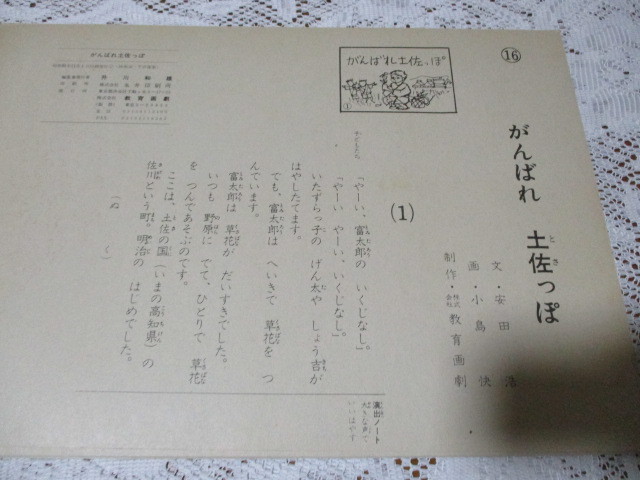 ⑯
がんばれ 土佐っぽ
とさ
文・安田 浩
画・小島 快
制作・株式会社教育画劇
がんばれ土佐っぽ
①
(1)
子どもたち
「やーい、富太郎の いくじなし。」
「やーい やーい、いくじなし。」
いたずらっ子の げん太や しょう吉が
はやしたてます。
でも、富太郎は へいきで 草花を つ
んでいます。
富太郎は 草花が だいすきでした。
いつも 野原に でて、ひとりで 草花
を つんであそぶのです。
ここは、土佐の国(いまの高知県)の
佐川という町。明治の はじめでした。
「ぬ く」
演出ノート
大きな声で
いいはやす
がんばれ土佐っぽ
教育画劇